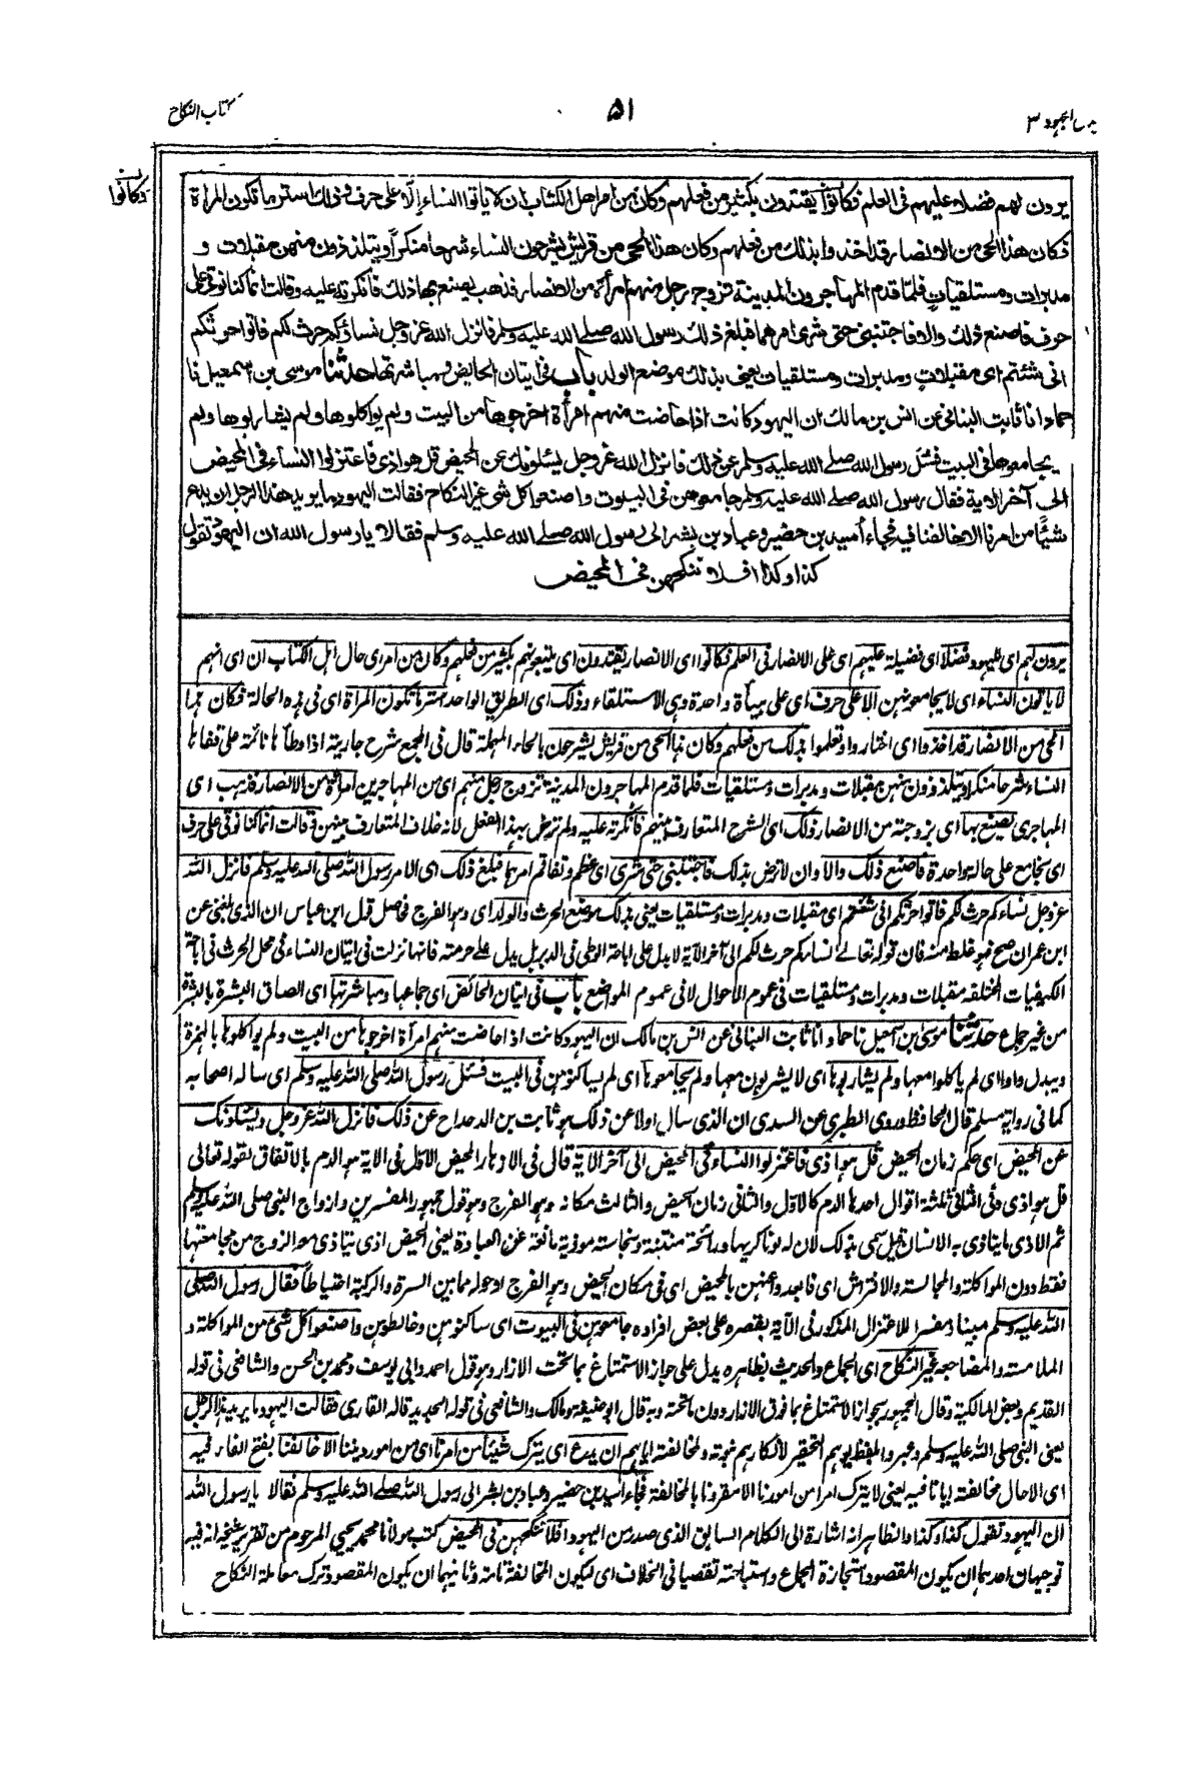 كتاب النكاح
٥١
بذل المجهود ٣
وكانوا
يرون لهم فضلا عليهم فى العلم فكانوا يقتدون بكثير من فعلهم وكان من امر اهل الكتاب ان لا يأتوا النساء إلا على حرف وذلك استر ما تكون المرأة
فكان هذا الحى من الانصار قد اخذوا بذلك من فعلهم وكان هذا الحى من قريش يشرحون النساء شرحا منكراً ويتلذذون منهن مقبلات و
مدبرات ومستلقيات فلما قدم المهاجرون المدينة تزوج رجل منهم امرأة من الانصار فذهب يصنع بها ذلك فأنكرته عليه وقالت انما كنا نؤتى على
حرف فاصنع ذلك والا فاجتنبنى حتى شرى امرهما فبلغ ذلك رسول الله صلى الله عليه وسلم فانزل الله عز وجل نساؤكم حرث لكم فاتوا حرثكم
انى شئتم اى مقبلات ومدبرات ومستلقيات يعنى بذلك موضع الولد باب فى اتيان الحائض ومباشرتها حدثنا موسى بن اسمعيل نا
حماد انا ثابت البنانى عن انس بن مالك ان اليهود كانت اذا حاضت منهم امرأة اخرجوها من البيت ولم يواكلوها ولم يشاربوها ولم
يجامعوها فى البيت فسئل رسول الله صلى الله عليه وسلم عن ذلك فانزل الله عز وجل يسئلونك عن المحيض قل هو اذى فاعتزلوا النساء فى المحيض
الى آخر الاية فقال رسول الله صلى الله عليه وسلم جامعوهن فى البيوت واصنعوا كل شئ غير النكاح فقالت اليهود ما يريد هذا الرجل ان يدع
شيئاً من امرنا الا خالفنا فيه فجاء أسيد بن حضير وعباد بن بشر الى رسول الله صلى الله عليه وسلم فقالا يا رسول الله ان اليهود تقول
كذا وكذا افلا ننكحهن فى المحيض
يرون لهم اى لليهود فضلا اى فضيلة عليهم اى على الانصار فى العلم فكانوا اى الانصار يقتدون اى يتبعونهم بكثير من فعلهم وكان من امر اى حال اهل الكتاب ان اى انهم
لا ياتون النساء اى لا يجامعونهن الا على حرف اى على هيأة واحدة وهى الاستلقاء وذلك اى الطريق الواحد استر ما تكون المرأة اى فى هذه الحالة فكان هذا
الحى من الانصار قد اخذوا اى اختاروا وتعلموا بذلك من فعلهم وكان هذا الحى من قريش يشرحون بالحاء المهملة قال فى المجمع شرح جاريته اذا وطأها نائمة على قفاها
النساء شرحا منكرا ويتلذذون منهن مقبلات ومدبرات ومستلقيات فلما قدم المهاجرون المدينة تزوج رجل منهم اى من المهاجرين امرأة من الانصار فذهب اى
المهاجرى يصنع بها اى بزوجته من الانصار ذلك اى الشرح المتعارف بينهم فأنكرته عليه ولم ترض بهذا الفعل لانه خلاف المتعارف بينهن وقالت انما كنا نؤتى على حرف
اى نجامع على حالة واحدة فاصنع ذلك والا وان لا ترض بذلك فاجتنبنى حتى شرى اى عظم وتفاقم امرهما فبلغ ذلك اى الامر رسول الله صلى الله عليه وسلم فانزل الله
عز وجل نساءكم حرث لكم فاتوا حرثكم انى شئتم اى مقبلات ومدبرات ومستلقيات يعنى بذلك موضع الحرث والولد اى وهو الفرج فحاصل قول ابن عباس ان الذى بلغنى عن
ابن عمر ان صح فهو غلط منه فان قوله تعالى نسائكم حرث لكم الى آخر الآية لا يدل على اباحة الوطى فى الدبر بل يدل على حرمته فانها نزلت فى اتيان النساء فى محل الحرث فى اباحة
الكيفيات المختلفة مقبلات ومدبرات ومستلقيات فى عموم الاحوال لا فى عموم المواضع باب فى اتيان الحائض اى جماعها ومباشرتها اى الصاق البشرة بالبشرة
من غير جماع حدثنا موسى بن اسمعيل نا حماد انا ثابت البنانى عن انس بن مالك ان اليهود كانت اذا حاضت منهم امرأة اخرجوها من البيت ولم يواكلوها بالهمزة
ويبدل واوا اى لم ياكلوا معها ولم يشاربوها اى لا يشربون معها ولم يجامعوها اى لم يساكنوهن فى البيت فسئل رسول الله صلى الله عليه وسلم اى ساله اصحابه
كما فى رواية مسلم قال الحافظ وروى الطبرى عن السدى ان الذى سال اولا عن ذلك هو ثابت بن الدحداح عن ذلك فانزل الله عز وجل ويسئلونك
عن المحيض اى حكم زمان الحيض قل هو اذى فاعتزلوا النساء فى المحيض الى آخر الآية قال فى الازهار المحيض الاول فى الآية هو الدم بالاتفاق لقوله تعالى
قل هو اذى وفى الثانى ثلثة اقوال احدها الدم كالاول والثانى زمان الحيض والثالث مكانه وهو الفرج وهو قول جمهور المفسرين وازواج النبى صلى الله عليه وسلم
ثم الاذى ما يتاذى به الانسان قيل سمى بذلك لان له لونا كريها ورائحة منتنة ونجاسته موذية مانعة عن العبادة يعنى الحيض اذى يتاذى معه الزوج من مجامعتها
فقط دون المواكلة والمجالسة والافتراش اى فابعدوا عنهن بالمحيض اى فى مكان الحيض وهو الفرج او حوله مما بين السرة والركبة احتياطاً فقال رسول الله صلى
الله عليه وسلم مبينا ومفسرا للاعتزال المذكور فى الآية بقصره على بعض افراده جامعوهن فى البيوت اى ساكنوهن وخالطوهن واصنعوا كل شئ من المواكلة و
الملامسة والمضاجعة غير النكاح اى الجماع والحديث بظاهره يدل على جواز الاستمتاع بما تحت الازار وهو قول احمد وابى يوسف ومحمد بن الحسن والشافعى فى قوله
القديم وبعض المالكية وقال الجمهور بجواز الاستمتاع بما فوق الازار دون ما تحته وبه قال ابو حنيفة ومالك والشافعى فى قوله الجديد قاله القارى فقالت اليهود ما يريد هذا الرجل
يعنى النبى صلى الله عليه وسلم وعبروا بلفظ يوهم التحقير لانكارهم نبوته ولمخالفته اياهم ان يدع اى يترك شيئا من امرنا اى من امور ديننا الا خالفنا بفتح الفاء فيه
اى الا حال مخالفته ايانا فيه يعنى لا يترك امرا من امورنا الا مقرونا بالمخالفة فجاء اسيد بن حضير وعباد بن بشر الى رسول الله صلى الله عليه وسلم فقالا يا رسول الله
ان اليهود تقول كذا وكذا والظاهر انه اشارة الى الكلام السابق الذى صدر من اليهود افلا ننكحهن فى المحيض كتب مولانا محمد يحيى المرحوم من تقرير شيخه انه فيه
توجيهان احدهما ان يكون المقصود استجازة الجماع واستباحته تقصيا فى الخلاف اى ليكون المخالفة تامة وثانيهما ان يكون المقصود ترك معاملة النكاح